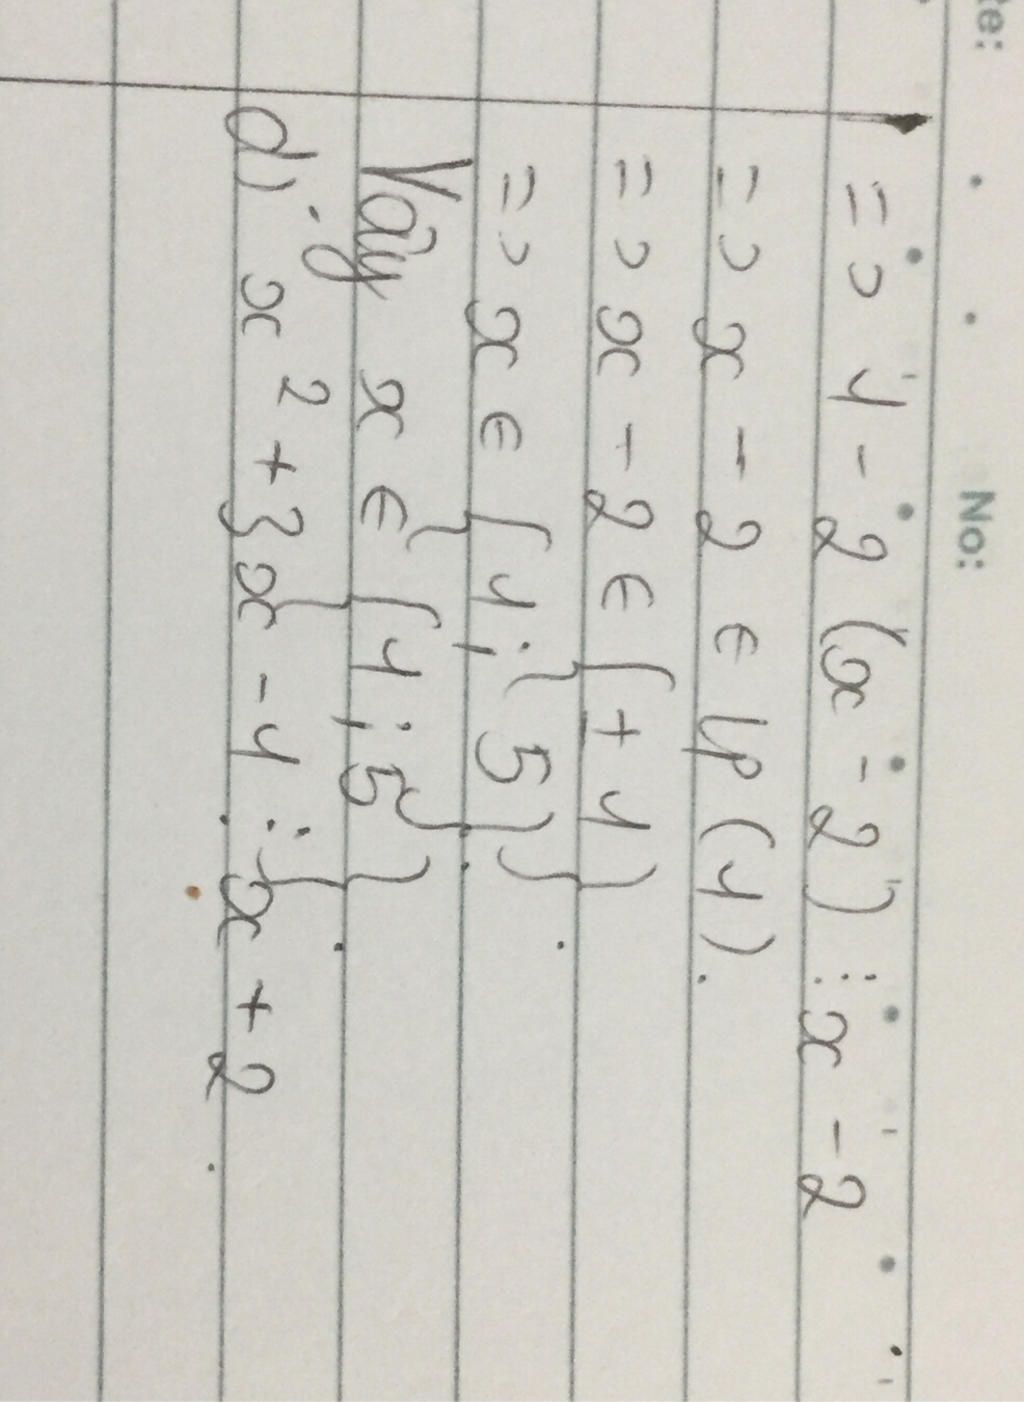 te: No:
=> 4 - 2 (x - 2) ⋮ x - 2
=> x - 2 ∈ Ư (4).
=> x - 2 ∈ { ± 4 } .
=> x ∈ { 4 ; 5 } .
Vậy x ∈ { 4 ; 5 } .
d). x² + 3x - 4 ⋮ x + 2 .